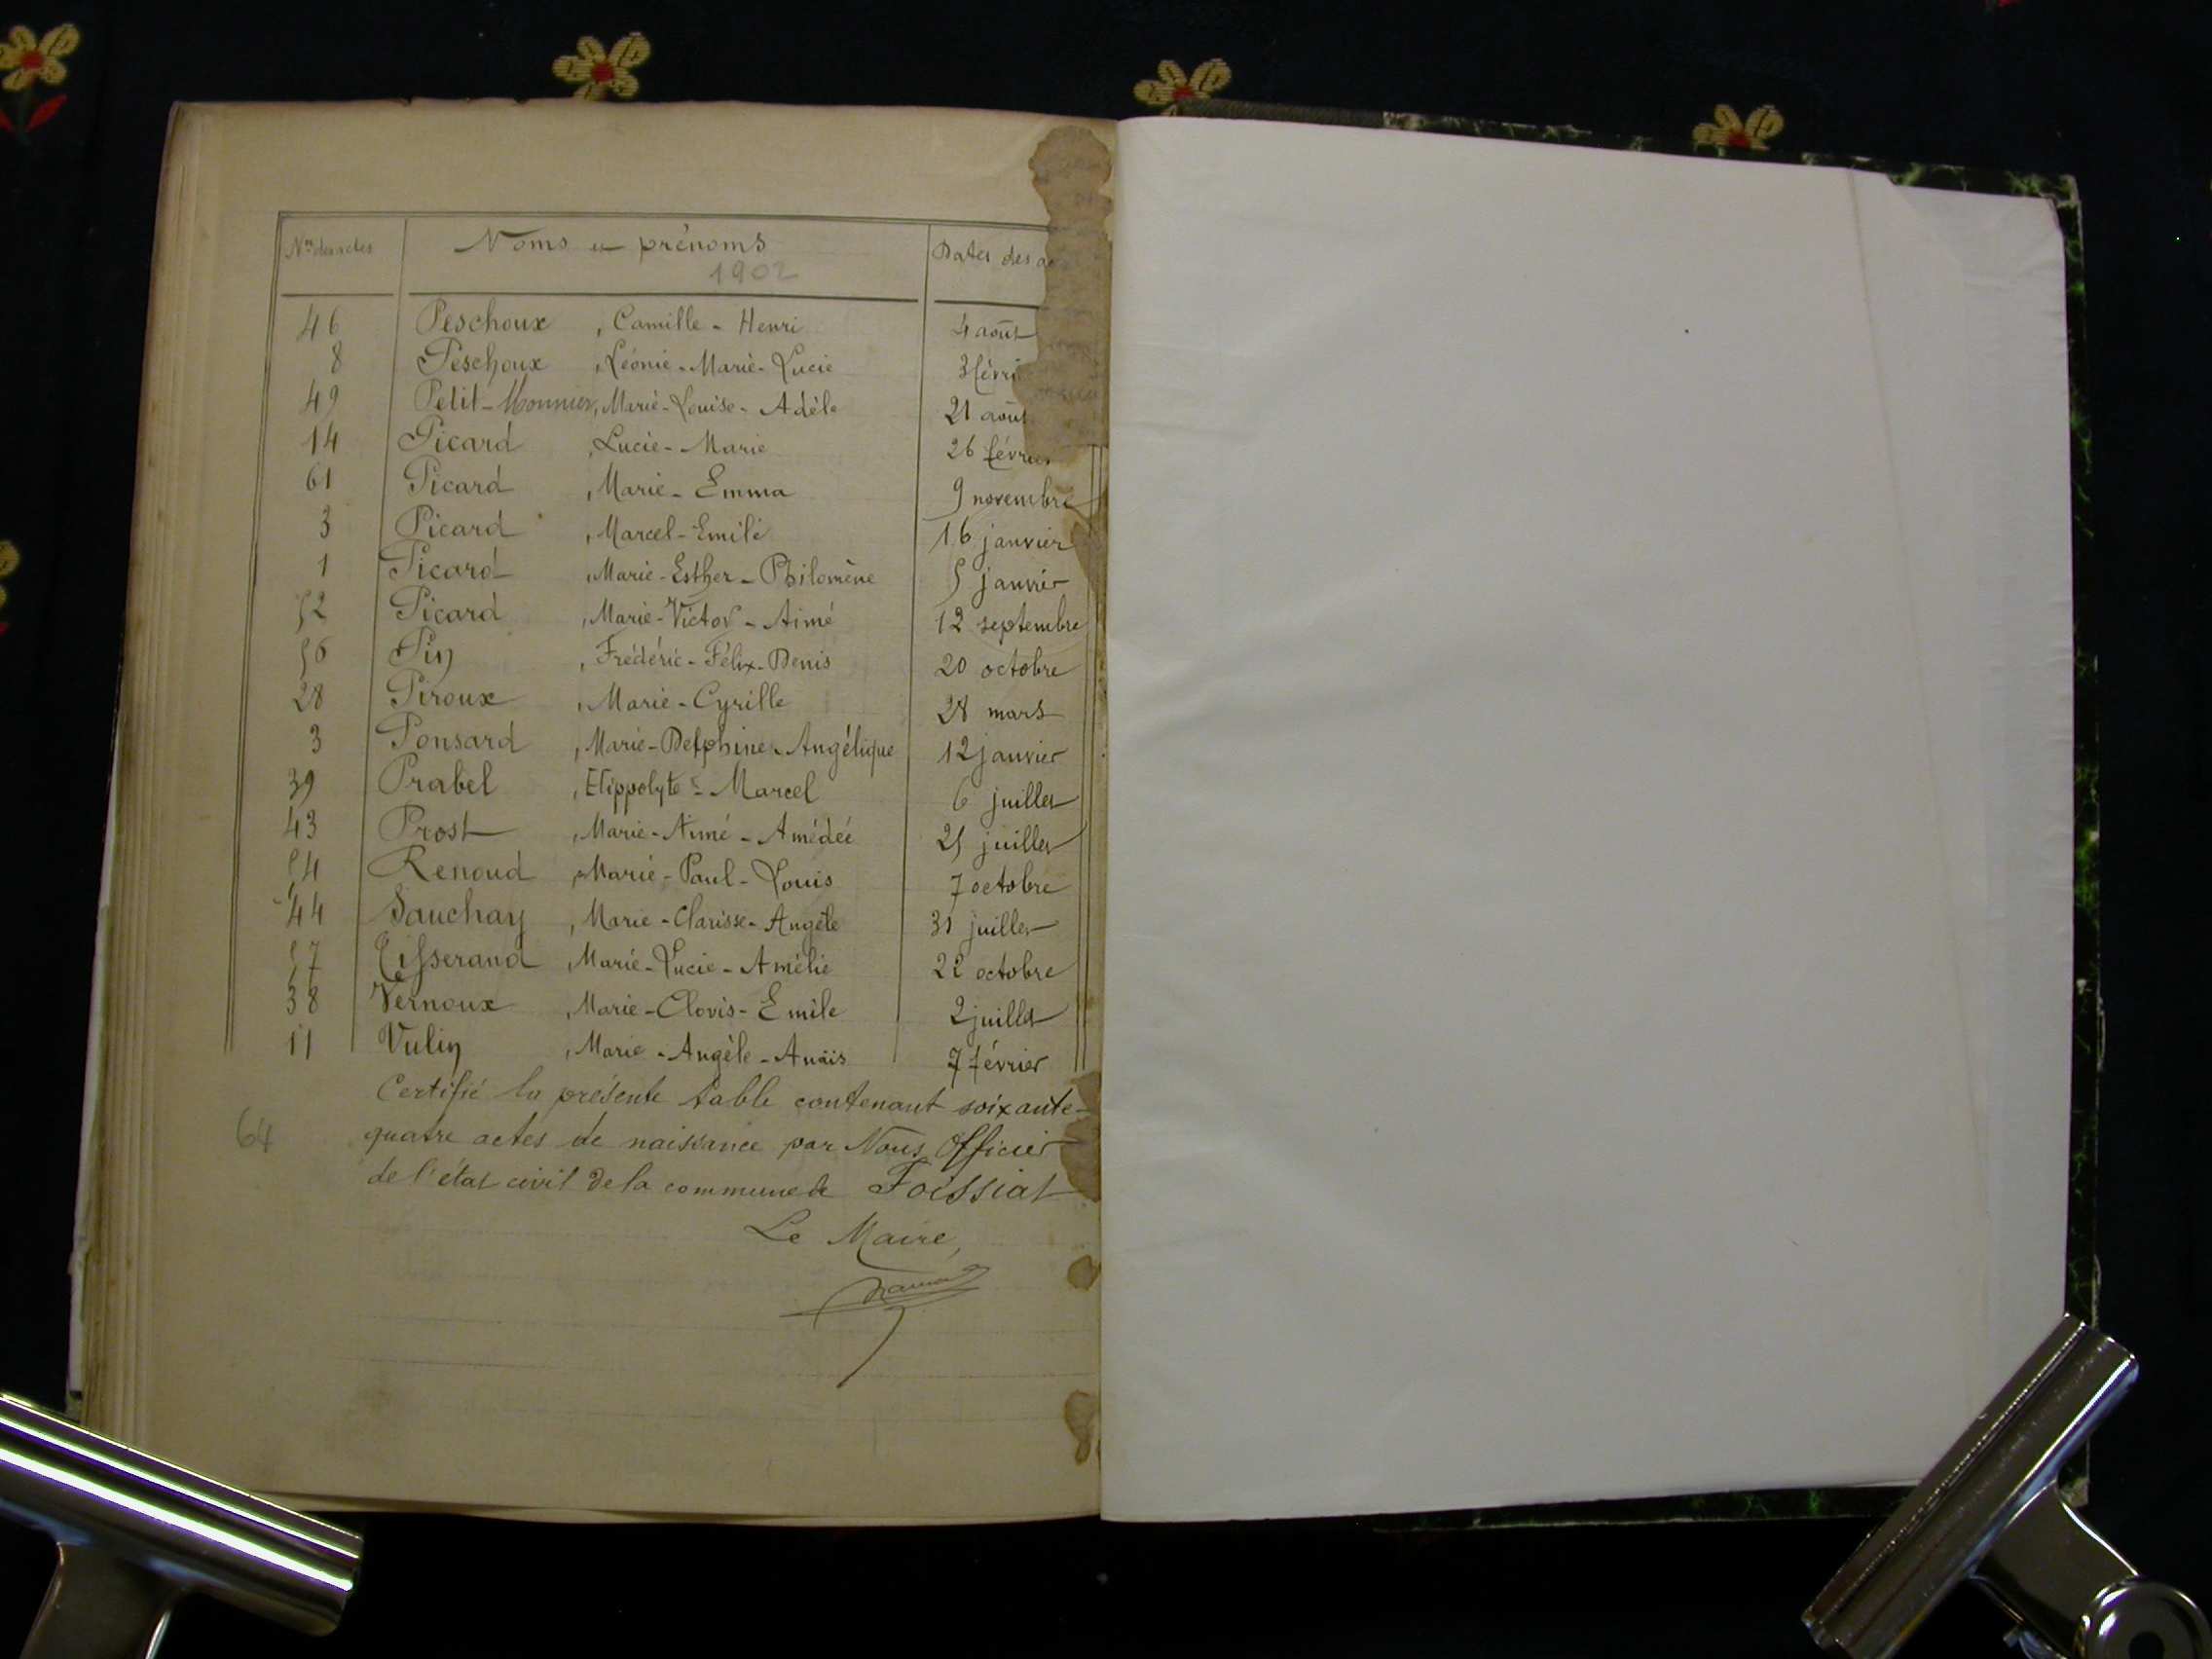 Nos des actes Noms et prénoms Dates des ac
1902
46 Peschoux , Camille - Henri 4 août
8 Peschoux , Léonie - Marie - Lucie 3 févri
49 Petit - Monnier, Marie - Louise - Adèle 21 août
14 Picard , Lucie - Marie 26 février
61 Picard , Marie - Emma 9 novembre
3 Picard , Marcel - Emile 16 janvier
1 Picard , Marie - Esther - Philomène 5 janvier
52 Picard , Marie - Victor - Aimé 12 septembre
56 Pin , Frédéric - Félix - Denis 20 octobre
28 Piroux , Marie - Cyrille 28 mars
3 Ponsard , Marie - Delphine - Angélique 12 janvier
39 Prabel , Hippolyte - Marcel 6 juillet
43 Prost , Marie - Aimé - Amédée 25 juillet
54 Renoud , Marie - Paul - Louis 7 octobre
44 Sauchay , Marie - Clarisse - Angèle 31 juillet
57 Tisserand , Marie - Lucie - Amélie 22 octobre
38 Vernoux , Marie - Clovis - Emile 2 juillet
11 Vulin , Marie - Angèle - Anaïs 7 février
Certifié la présente table contenant soixante-
64 quatre actes de naissance par Nous Officier
de l'état civil de la commune de Foissiat
Le Maire,